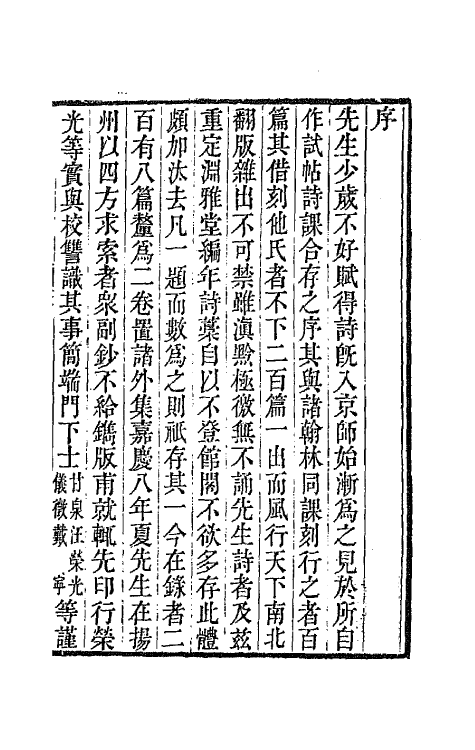 序
先生少歲不好賦得詩旣入京師始漸爲之見於所自
作試帖詩課合存之序其與諸翰林同課刻行之者百
篇其借刻他氏者不下二百篇一出而風行天下南北
翻版雜出不可禁雖滇黔極徼無不誦先生詩者及玆
重定淵雅堂編年詩藳自以不登館閣不欲多存此體
頗加汰去凡一題而數爲之則祇存其一今在錄者二
百有八篇釐爲二卷置諸外集嘉慶八年夏先生在揚
州以四方求索者衆副鈔不給鐫版甫就輒先印行榮
光等實與校讐識其事簡端門下士甘泉汪榮光儀徵戴寧等謹